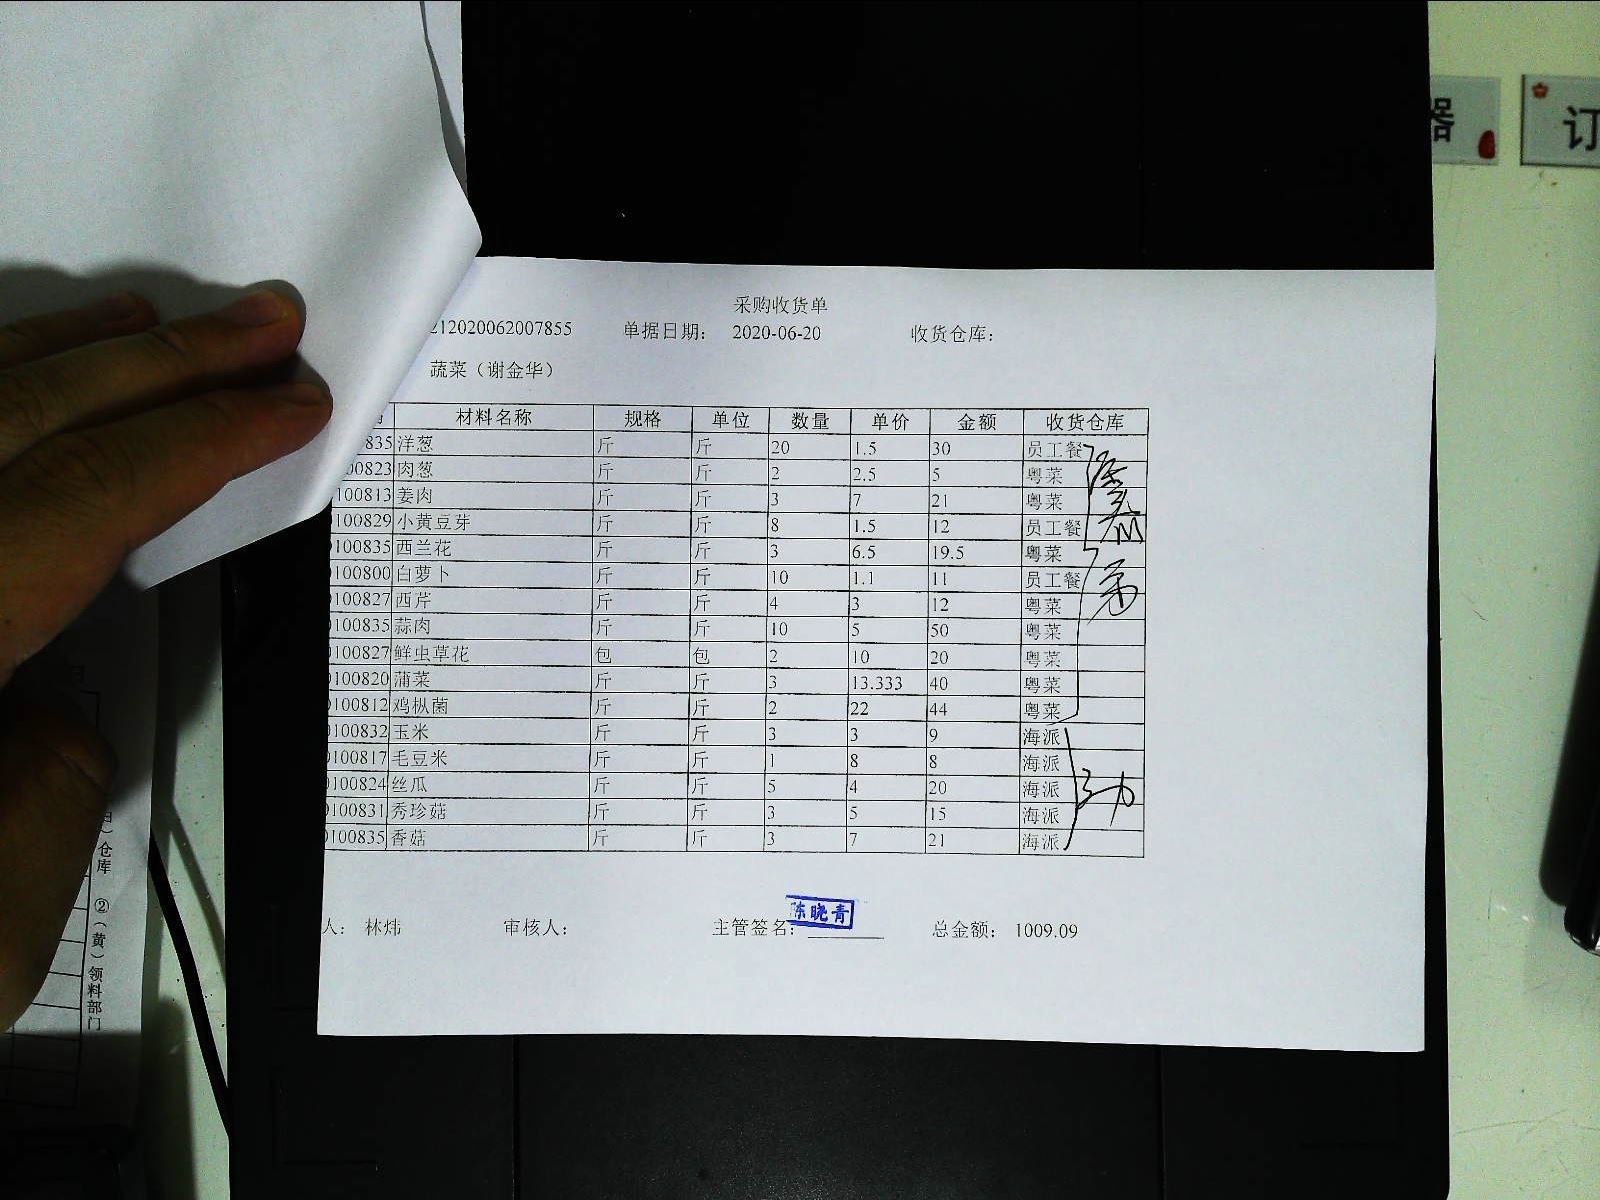 器
订
采购收货单
212020062007855 单据日期： 2020-06-20 收货仓库：
蔬菜（谢金华）
材料名称 规格 单位 数量 单价 金额 收货仓库
835 洋葱 斤 斤 20 1.5 30 员工餐
00823 肉葱 斤 斤 2 2.5 5 粤菜
100813 姜肉 斤 斤 3 7 21 粤菜
0100829 小黄豆芽 斤 斤 8 1.5 12 员工餐
0100835 西兰花 斤 斤 3 6.5 19.5 粤菜
0100800 白萝卜 斤 斤 10 1.1 11 员工餐
0100827 西芹 斤 斤 4 3 12 粤菜
0100835 蒜肉 斤 斤 10 5 50 粤菜
0100827 鲜虫草花 包 包 2 10 20 粤菜
0100820 蒲菜 斤 斤 3 13.333 40 粤菜
0100812 鸡枞菌 斤 斤 2 22 44 粤菜
0100832 玉米 斤 斤 3 3 9 海派
0100817 毛豆米 斤 斤 1 8 8 海派
0100824 丝瓜 斤 斤 5 4 20 海派
0100831 秀珍菇 斤 斤 3 5 15 海派
0100835 香菇 斤 斤 3 7 21 海派
人： 林炜 审核人： 主管签名： 陈晓青 总金额： 1009.09
）仓库 ②（黄）领料部门